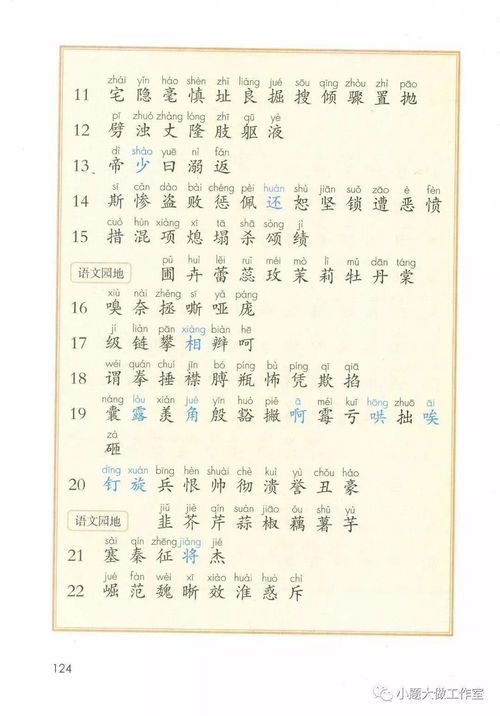 zhái yǐn háo shèn zhǐ liáng jué sōu qīng zhòu zhì pāo
11 宅 隐 毫 慎 址 良 掘 搜 倾 骤 置 抛
pī zhuó zhàng lóng zhī qū yè
12 劈 浊 丈 隆 肢 躯 液
dì shào yuē nì fǎn
13 帝 少 曰 溺 返
sī cǎn dào bài chéng pèi huán shù jiān suǒ zāo è fèn
14 斯 惨 盗 败 惩 佩 还 恕 坚 锁 遭 恶 愤
cuò hùn xiàng xī tā shā sòng jì
15 措 混 项 熄 塌 杀 颂 绩
pǔ huì lěi ruǐ méi mò lì mǔ dān táng
语文园地 圃 卉 蕾 蕊 玫 茉 莉 牡 丹 棠
xiù nài zhěng sī yǎ páng
16 嗅 奈 拯 嘶 哑 庞
jí liàn pān xiàng biàn hē
17 级 链 攀 相 辩 呵
wèi quán chuí jīn bó píng bù píng qī qiā
18 谓 拳 捶 襟 膊 瓶 怖 凭 欺 掐
náng lòu xiàn jué yīn huò piē ā méi kuī hōng zhuō āi
19 囊 露 羡 角 殷 豁 撇 啊 霉 亏 哄 拙 唉
zá
砸
dīng xuán bīng hèn shuài chè kuì yù chǒu háo
20 钉 旋 兵 恨 帅 彻 溃 誉 丑 豪
jiǔ jiè qín suàn jiāo ǒu shǔ yù
语文园地 韭 芥 芹 蒜 椒 藕 薯 芋
sài qín zhēng jiàng jié
21 塞 秦 征 将 杰
jué fàn wèi xī xiào huái huò chì
22 崛 范 魏 晰 效 淮 惑 斥
124
小题大做工作室